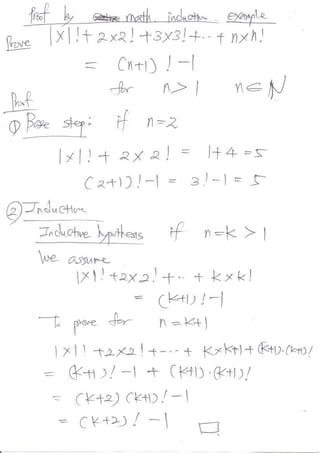 Proof by math induction example
Prove 1×1!+2×2!+3×3!+..+n×n!
= (n+1)!-1
for n>1 n∈ℕ
Proof
① Base step: if n=2
1×1!+2×2! = 1+4=5
(2+1)!-1 = 3!-1 = 5
② Induction
Inductive hypothesis if n=k>1
We assume
1×1!+2×2!+..+k×k!
= (k+1)!-1
To prove for n=k+1
1×1!+2×2!+-..+k×k!+(k+1).(k+1)!
= (k+1)!-1+(k+1).(k+1)!
= (k+2)(k+1)!-1
= (k+2)!-1 □